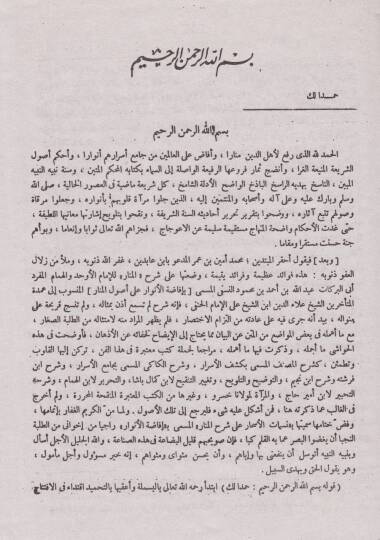 بسم الله الرحمن الرحيم
حمدا لك
بسم الله الرحمن الرحيم
الحمد لله الذى رفع لأهل الدين منارا ، وأفاض على العالمين من جامع أسرارهم أنوارا ، وأحكم أصول
الشريعة المنيعة الغرا ، وأنضج ثمار فروعها الرفيعة الواصلة إلى السماء بكتابه المحكم المتين ، وسنة نبيه النبيه
المبين ، الناسخ بهديه الراسخ الباذخ الواضح الأدلة الشامخ ، كل شريعة ماضية فى العصور الخالية ، صلى الله
وسلم وبارك عليه وعلى آله وأصحابه والمنتمين إليه ، الذين جلوا مرآة قلوبهم بأنواره ، وجعلوا مرقاة
وصولهم تتبع آثاره ، ووضحوا بتقرير تحرير أحاديثه السنة الشريفة ، ونقحوا بتلويح إشارتها معانيها اللطيفة ،
حتى غدت الأحكام واضحة المنهاج مستقيمة سليمة عن الاعوجاج ، فجزاهم الله تعالى ثوابا وإنعاما ، وبوأهم
جنة حسنت مستقرا ومقاما .
[ وبعد ] فيقول أحقر المبتدئين ؛ محمد أمين بن عمر المدعو بابن عابدين ، غفر الله ذنوبه ، وملأ من زلال
العفو ذنوبه : هذه فوائد عظيمة وفرائد يتيمة ، وضعتها على شرح المنار للإمام الأوحد والهمام المفرد
أبى البركات عبد الله بن أحمد بن محمود النسفى المسمى [ بإفاضة الأنوار على أصول المنار ] المنسوب إلى عمدة
المتأخرين الشيخ علاء الدين ابن الشيخ على الإمام الحنفى ، فإنه شرح لم تسمع أذن بمثاله ، ولم تنسج قريحة على
منواله ، بيد أنه جرى فيه على عادته من التزام الاختصار ، فلم يظهر المراد منه لأمثاله من الطلبة الصغار ،
مع ما أهمله فى بعض المواضع من المتن عن البيان مما يحتاج إلى الإيضاح لخفائه عن الأذهان ، فأوضحت فى هذه
الحواشى ما أجمله ، وذكرت فيها ما أهمله ، مراجعا لجملة كتب معتبرة فى هذا الفن ، تركن إليها القلوب
وتطمئن ، كشرح المصنف المسمى بكشف الأسرار ، وشرح الكاكى المسمى بجامع الأسرار ، وشرح ابن
فرشته وشرح ابن نجيم ، والتوضيح والتلويح ، وتغيير التنقيح لابن كمال باشا ، والتحرير لابن الهمام ، وشرحه
التحبير لابن أمير حاج ، والمرآة لمولانا خسرو ، وغيرها من الكتب المعتبرة المنقحة المحررة ، ولم أخرج
فى الغالب عما ذكرته هنا ، فمن أشكل عليه شىء فليرجع إلى تلك الأصول . ولما من الكريم الغفار بإتمامها ،
وفض ختامها سميتها بنسمات الأسحار على شرح المنار المسمى بإفاضة الأنوار ، وراجيا من إخوانى من الطلبة
النجبا أن يغضوا البصر عما به القلم كبا ، فإن صوابهم قليل البضاعة فى هذه الصناعة ، والله الجليل الأجل أسأل
وبنبيه النبيه أتوسل أن ينفعنى بها وإياهم ، وأن يحسن مثواى ومثواهم ، إنه خير مسؤول وأجل مأمول ،
وهو يقول الحق ويهدى السبيل .
( قوله بسم الله الرحمن الرحيم : حمدا لك ) ابتدأ رحمه الله تعالى بالبسملة وأعقبها بالتحميد اقتداء فى الافتتاح